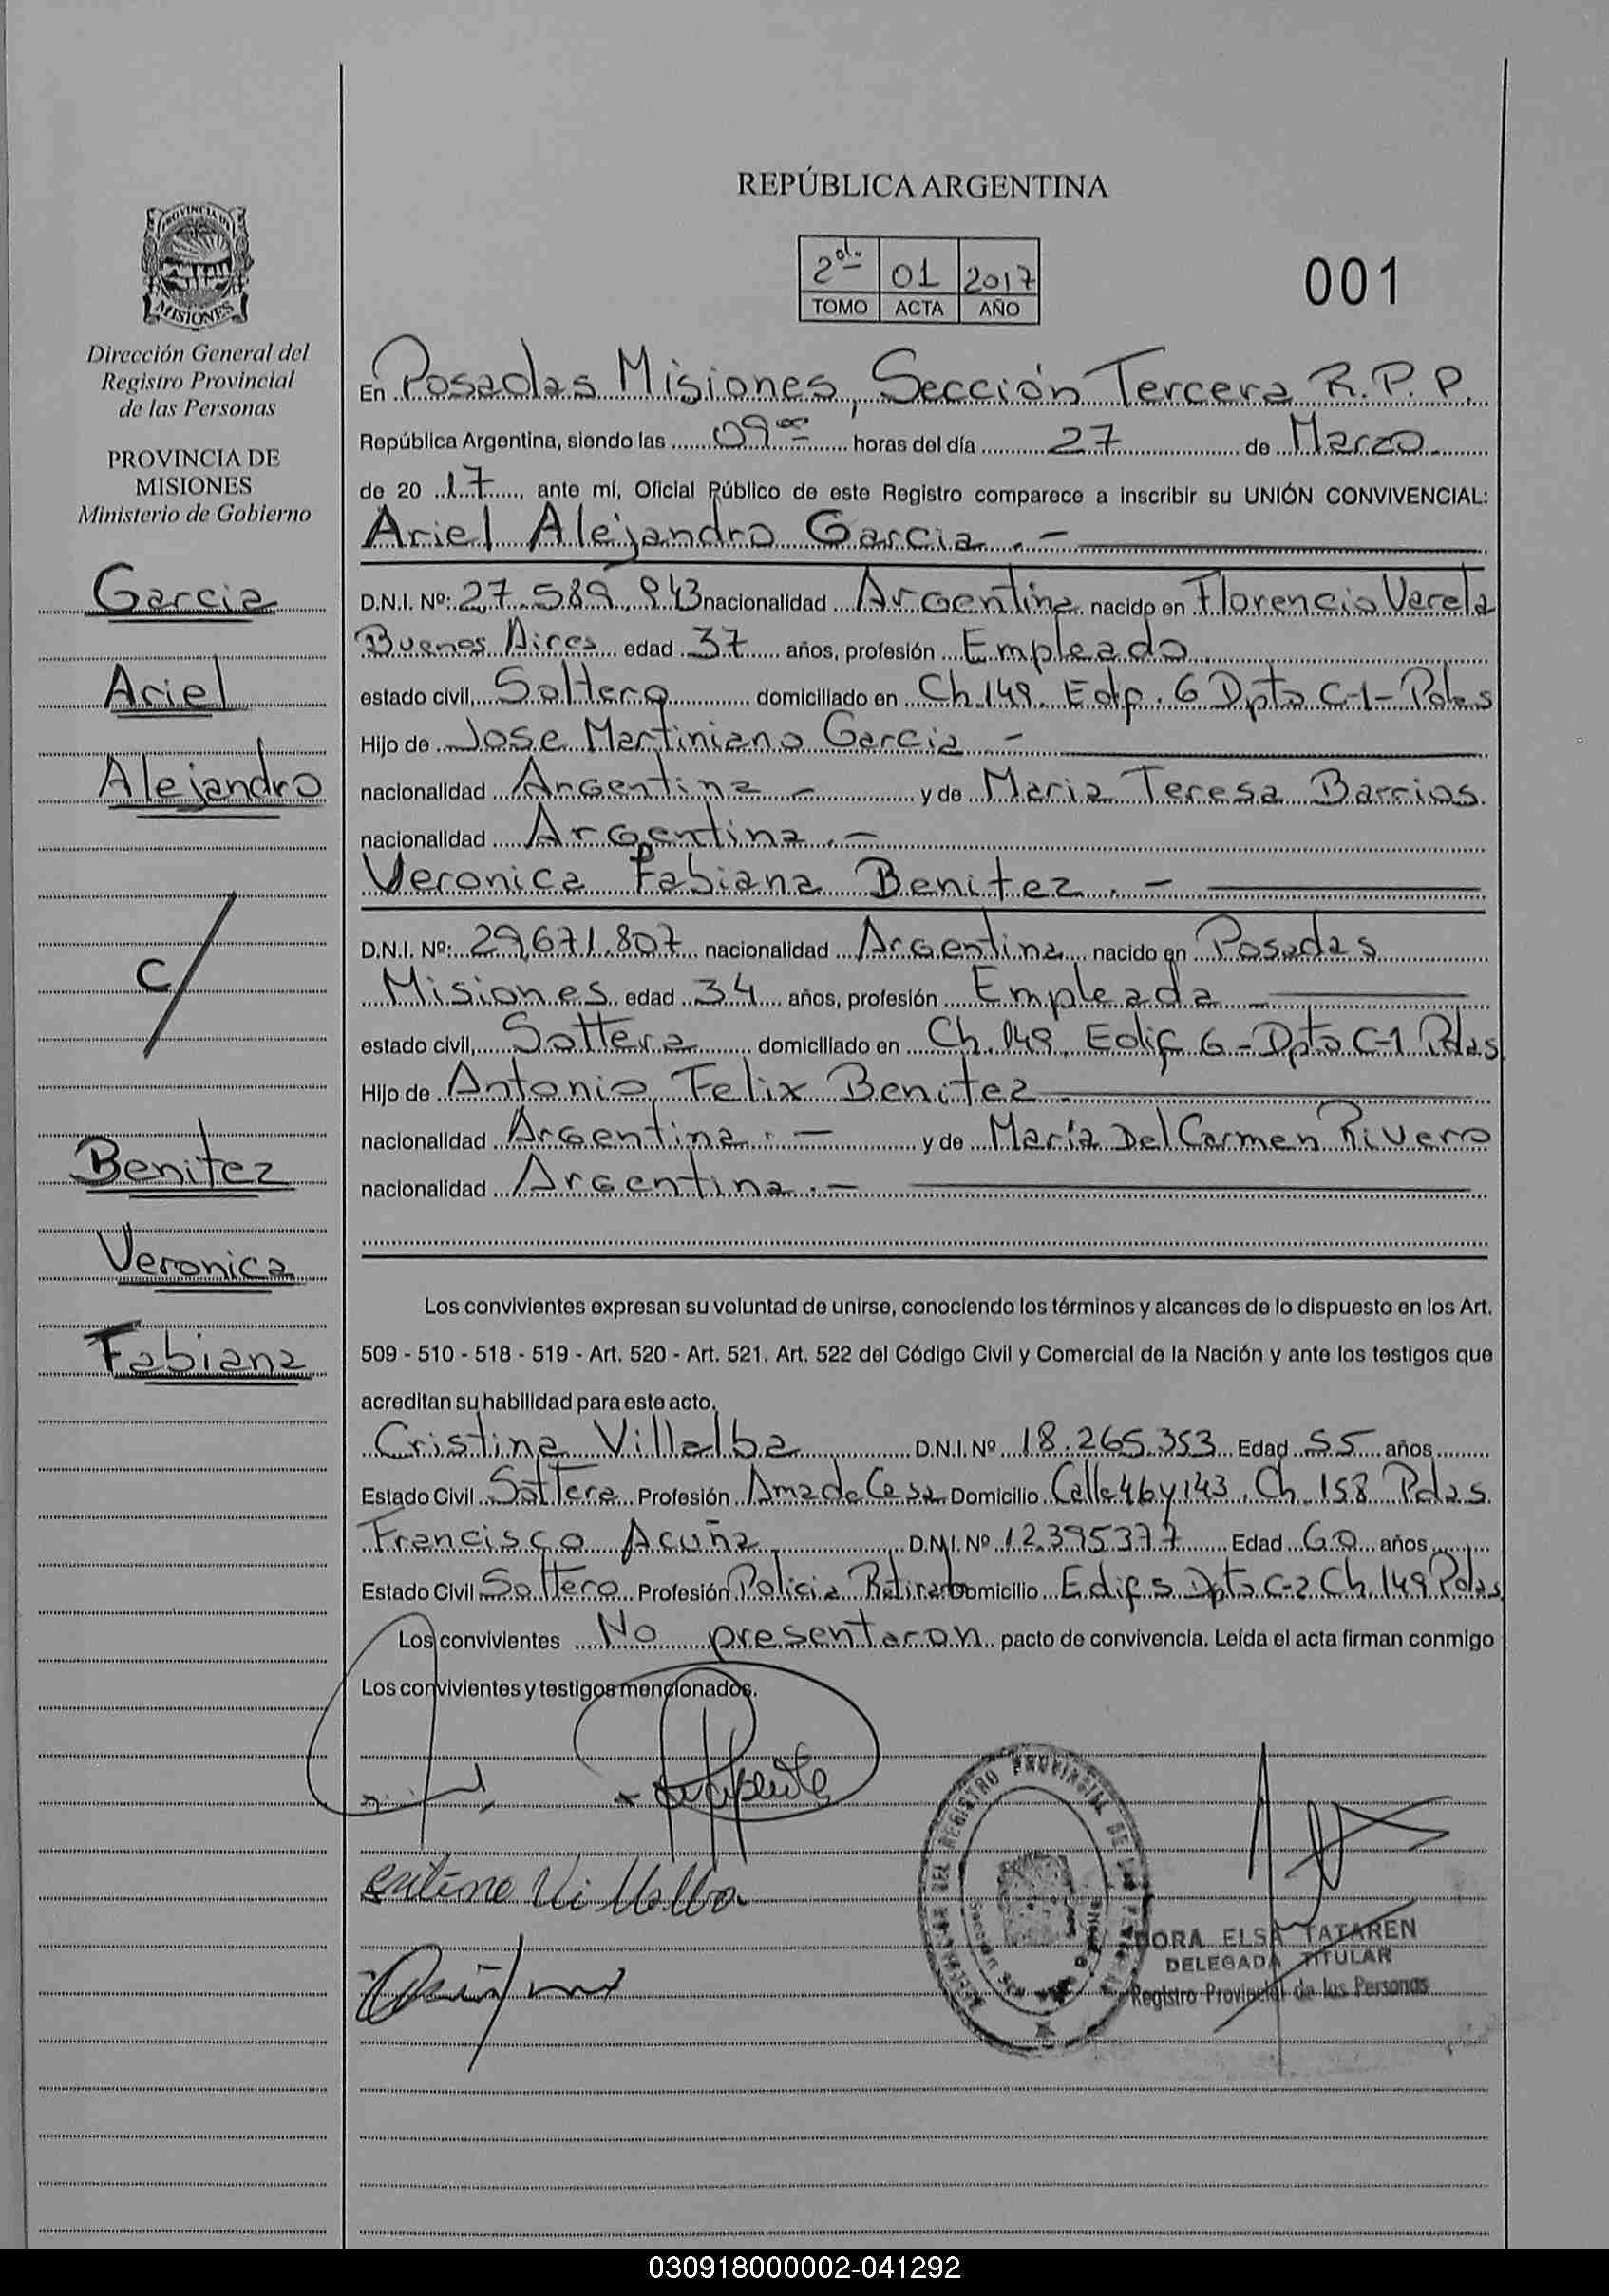 REPÚBLICA ARGENTINA
2do 01 2017
TOMO ACTA AÑO
001
PROVINCIA DE
MISIONES
Dirección General del
Registro Provincial
de las Personas
PROVINCIA DE
MISIONES
Ministerio de Gobierno
Garcia
Ariel
Alejandro
C/
Benitez
Veronica
Fabiana
En Posadas Misiones, Sección Tercera R.P.P.
República Argentina, siendo las 09 00 horas del día 27 de Marzo
de 20 17, ante mí, Oficial Público de este Registro comparece a inscribir su UNIÓN CONVIVENCIAL:
Ariel Alejandro Garcia.-
D.N.I. Nº: 27.589.943 nacionalidad Argentina nacido en Florencio Varela
Buenos Aires edad 37 años, profesión Empleado
estado civil, Soltero domiciliado en Ch.149. Edif. 6 Dpto C-1- Pdas
Hijo de Jose Martiniano Garcia -
nacionalidad Argentina - y de Maria Teresa Barrios
nacionalidad Argentina.-
Veronica Fabiana Benitez.-
D.N.I. Nº: 29.671.807 nacionalidad Argentina nacido en Posadas
Misiones edad 34 años, profesión Empleada
estado civil, Soltera domiciliado en Ch.149, Edif 6-Dpto C-1 Pdas
Hijo de Antonio Felix Benitez
nacionalidad Argentina.- y de María Del Carmen Rivero
nacionalidad Argentina.-
Los convivientes expresan su voluntad de unirse, conociendo los términos y alcances de lo dispuesto en los Art.
509 - 510 - 518 - 519 - Art. 520 - Art. 521. Art. 522 del Código Civil y Comercial de la Nación y ante los testigos que
acreditan su habilidad para este acto.
Cristina Villalba D.N.I. Nº 18.265.353 Edad 55 años
Estado Civil Soltera Profesión Ama de Casa Domicilio Calle 46 y 143, Ch 158 Pdas
Francisco Acuña D.N.I. Nº 12.395377 Edad 60 años
Estado Civil Soltero Profesión Policia Retirado Domicilio Edif 5 Dpto C-2 Ch 149 Pdas
Los convivientes No presentaron pacto de convivencia. Leída el acta firman conmigo
Los convivientes y testigos mencionados.
Villalba
DORA ELSA TATAREN
DELEGADA TITULAR
Registro Provincial de las Personas
030918000002-041292